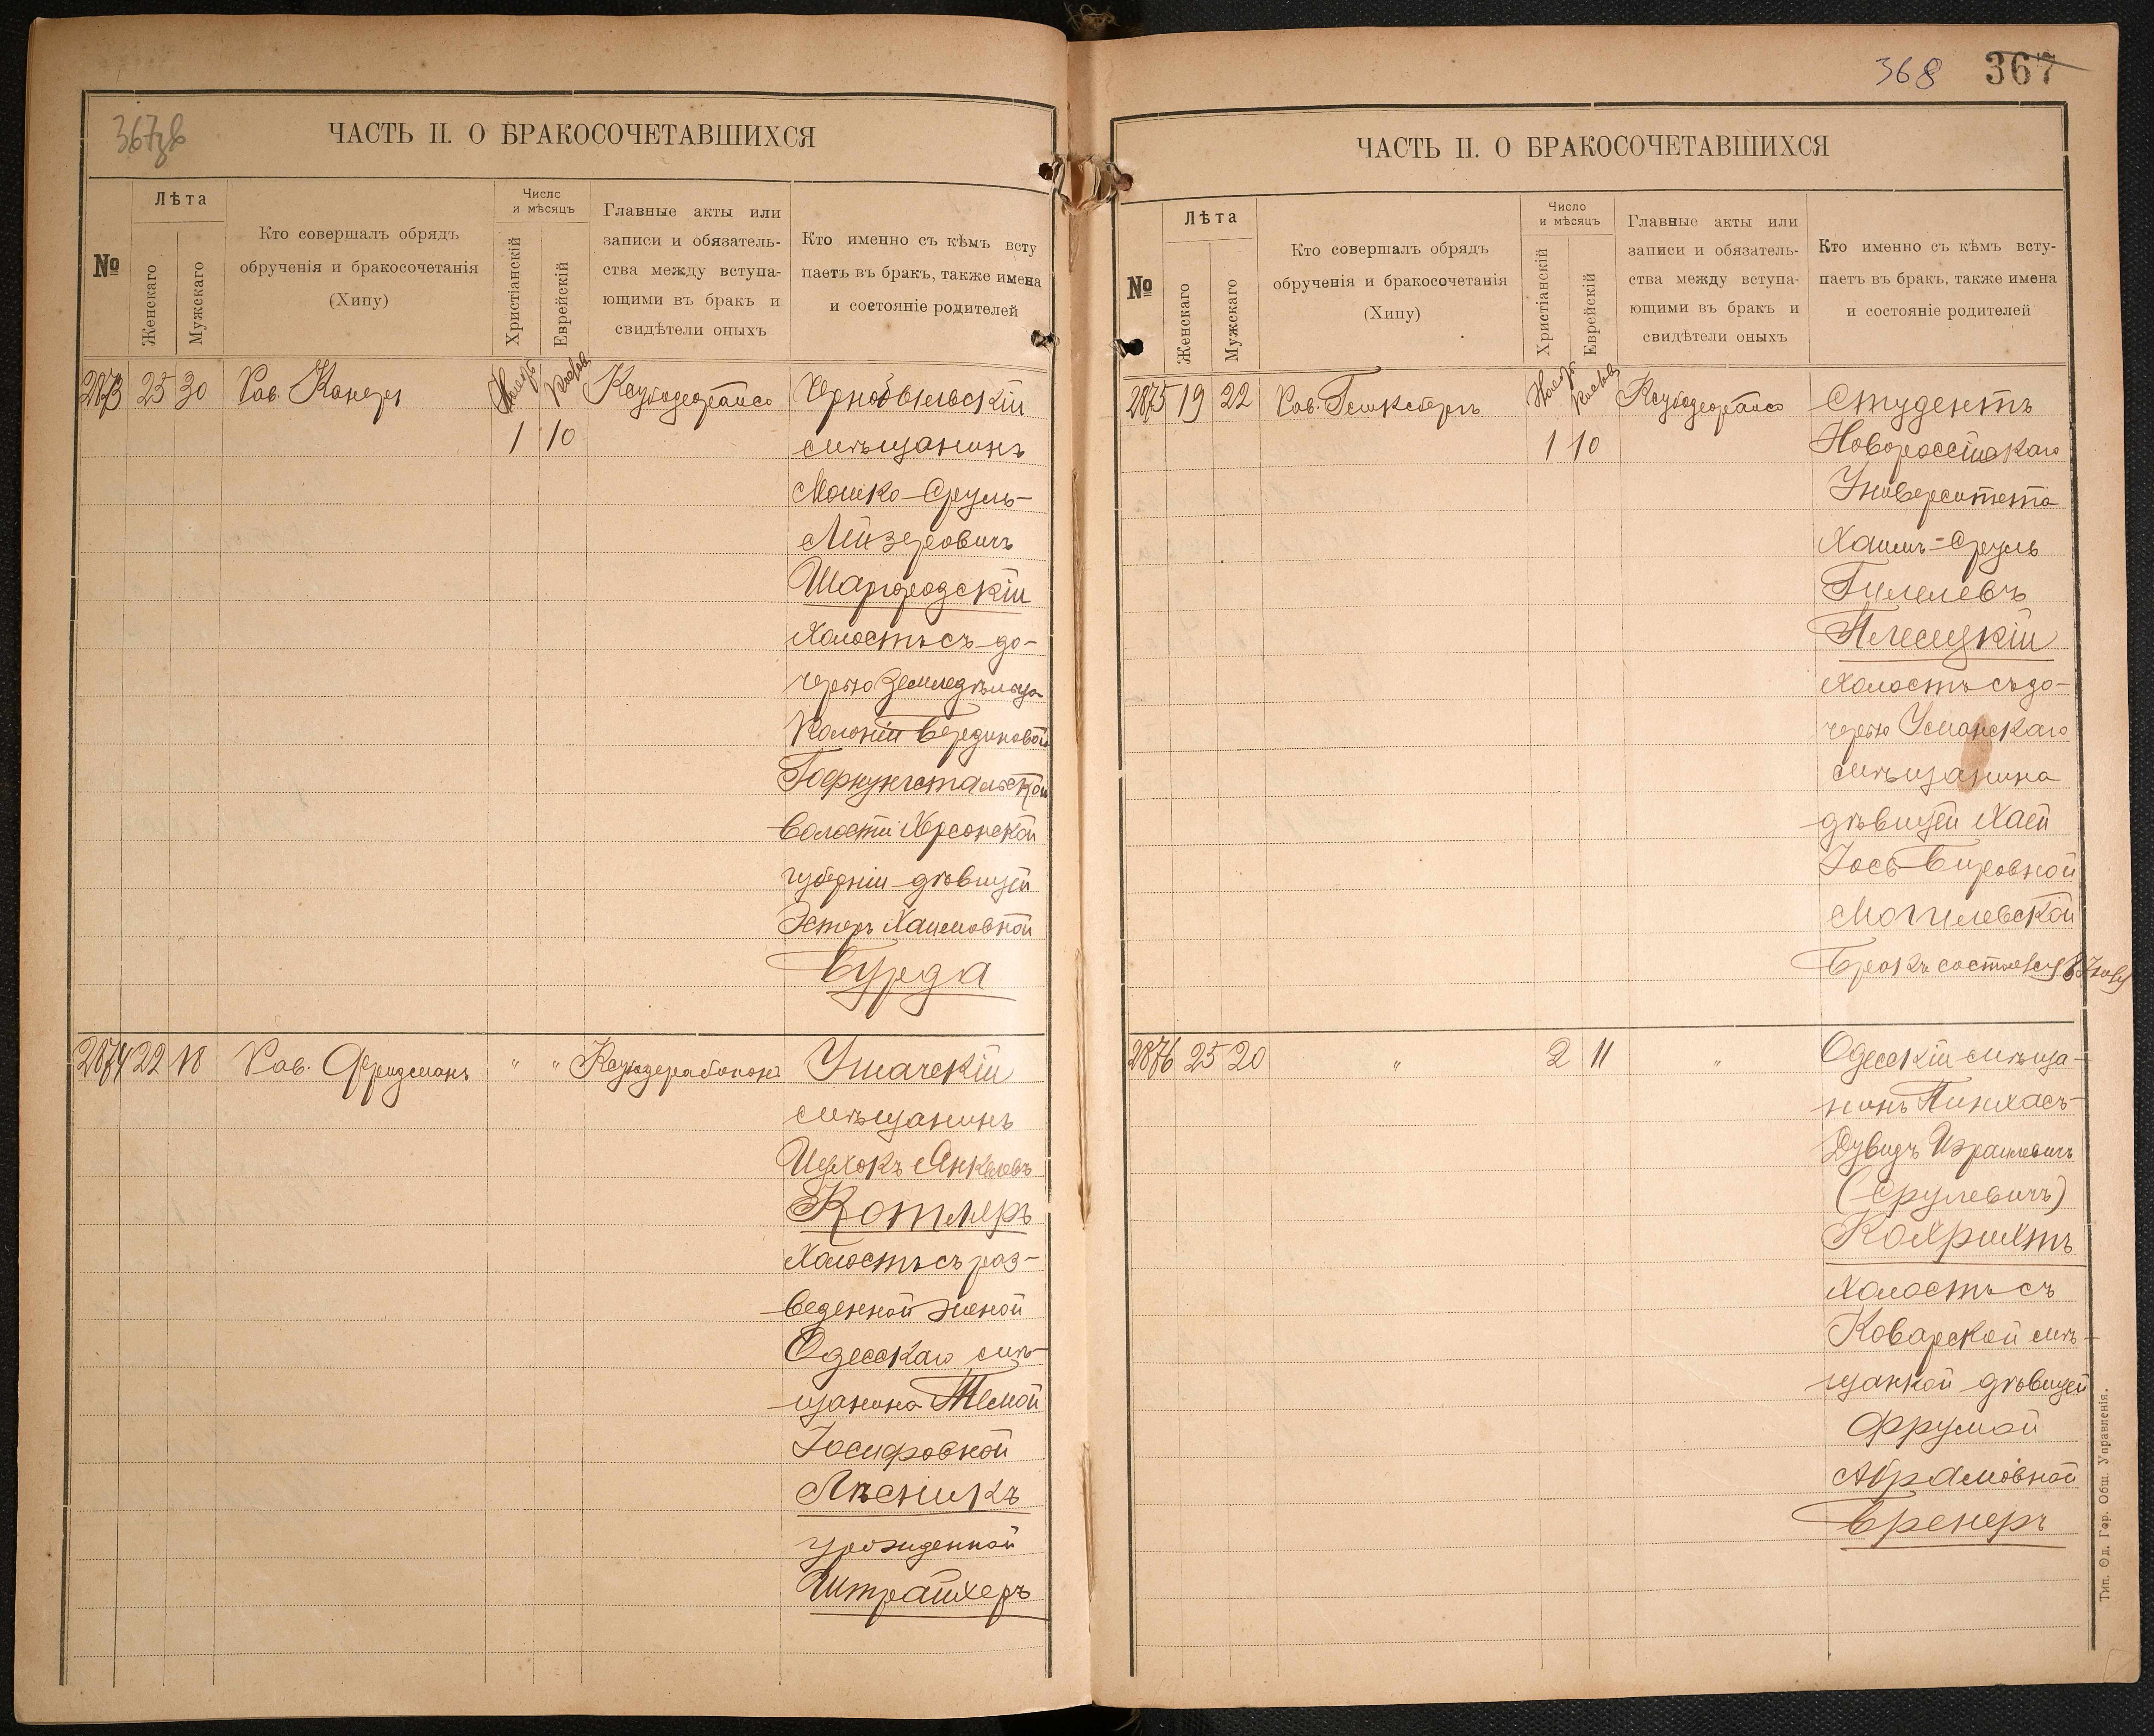 367зв
ЧАСТЬ II. О БРАКОСОЧЕТАВШИХСЯ
№
Лѣта
Женскаго
Мужскаго
Кто совершалъ обрядъ
обрученія и бракосочетанія
(Хипу)
Число
и мѣсяцъ
Христіанскій
Еврейскій
Главные акты или
записи и обязатель-
ства между вступа-
ющими въ бракъ и
свидѣтели оныхъ
Кто именно съ кѣмъ всту
паетъ въ бракъ, также имена
и состояніе родителей
2873 25 30 Рав. Канеръ Чернобыльскій
1 10 мѣщанинъ
Мошко-Сруль-
Лейзеровичъ
Шаргородскій
Холостъ съ до-
черью Земледѣльца
Колоніи
Гофнунгстальской
волости Херсонской
губерніи дѣвицей
Эстеръ Хаимовной
Бурда
2874 22 18 Рав. Фридманъ " " Ушачскій
мѣщанинъ
Ицхокъ Янкелевъ
Котляръ
Холостъ съ раз-
веденной женой
Одесскаго мѣ-
щанина Темой
Іосифовной
Лѣсникъ
урожденной
Штрайхеръ
368 367
ЧАСТЬ II. О БРАКОСОЧЕТАВШИХСЯ
№
Лѣта
Женскаго
Мужскаго
Кто совершалъ обрядъ
обрученія и бракосочетанія
(Хипу)
Число
и мѣсяцъ
Христіанскій
Еврейскій
Главные акты или
записи и обязатель-
ства между вступа-
ющими въ бракъ и
свидѣтели оныхъ
Кто именно съ кѣмъ всту-
паетъ въ бракъ, также имена
и состояніе родителей
2875 19 22 Рав. Студентъ
1 10 Новороссійскаго
Университета
Хаимъ-Сруль
Гилелевъ
Плесецкій
Холостъ съ до-
черью Уманскаго
мѣщанина
дѣвицей Хаей
Іось-Беровной
Могилевской
Бракъ состоялся
2876 25 20 " 2 11 " Одесскій мѣща-
нинъ Пинхасъ-
Дувидъ Израилевичъ
(Срулевичъ)
Кохрихтъ
Холостъ съ
Коварской мѣ-
щанкой дѣвицей
Фрумой
Абрамовной
Бренеръ
Тип. Од. Гор. Общ. Управленія.